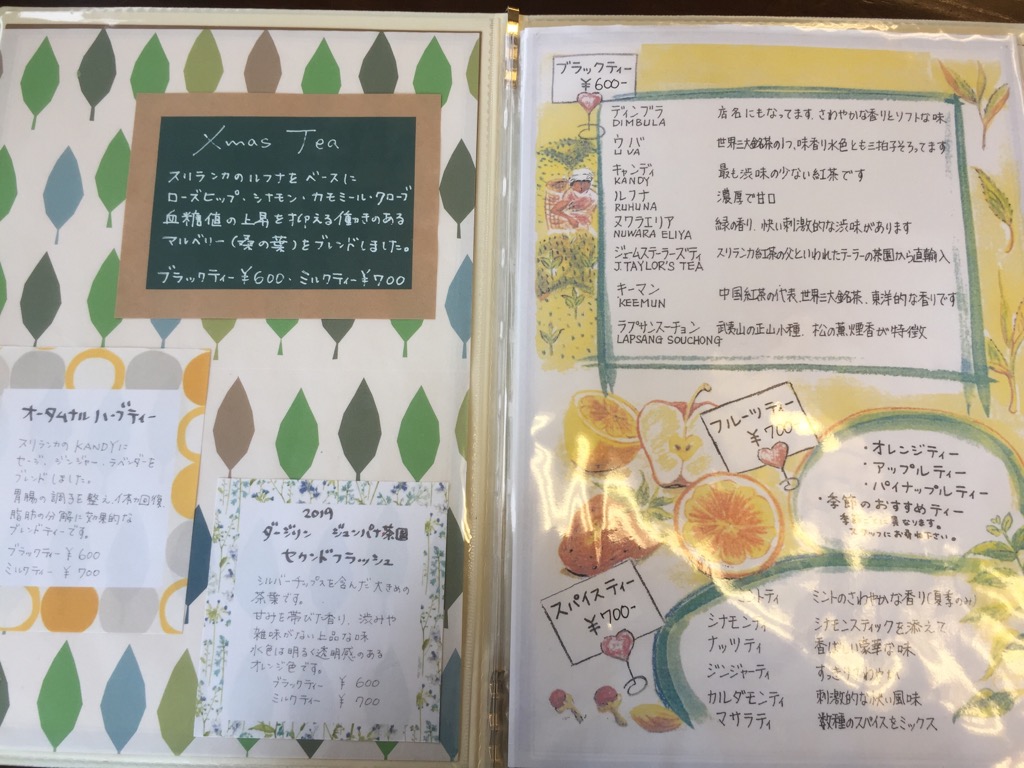 Xmas Tea
スリランカのルフナをベースに
ローズヒップ・シナモン・カモミール・クローブ
血糖値の上昇を抑える働きのある
マルベリー(桑の葉)をブレンドしました。
ブラックティー ¥600・ミルクティー ¥700
オータムナルハーブティー
スリランカのKANDYに
セージ、ジンジャー、ラベンダーを
ブレンドしました。
胃腸の調子を整え、体力回復、
脂肪の分解に効果的な
ブレンドティーです。
ブラックティー ¥600
ミルクティー ¥700
2019
ダージリン ジュンパナ茶園
セカンドフラッシュ
シルバーチップスを含んだ大きめの
茶葉です。
甘みを帯びた香り、渋みや
雑味がない上品な味
水色は明るく透明感のある
オレンジ色です。
ブラックティー ¥600
ミルクティー ¥700
ブラックティー
¥600-
ディンブラ 店名にもなってます。さわやかな香りとソフトな味
DIMBULA
ウバ 世界三大銘茶の1つ、味香り水色とも三拍子そろってます
UVA
キャンディ 最も渋味の少ない紅茶です
KANDY
ルフナ 濃厚で甘口
RUHUNA
ヌワラエリア 緑の香り、快い刺激的な渋味があります
NUWARA ELIYA
ジェームステーラーズティ スリランカ紅茶の父といわれたテーラーの茶園から直輸入
J.TAYLOR'S TEA
キーマン 中国紅茶の代表、世界三大銘茶、東洋的な香りです
KEEMUN
ラプサンスーチョン 武夷山の正山小種、松の薫煙香が特徴
LAPSANG SOUCHONG
フルーツティー
¥700-
・オレンジティー
・アップルティー
・パイナップルティー
・季節のおすすめティー
スタッフにお尋ね下さい。
スパイスティー
¥700-
ミントのさわやかな香り(夏季のみ)
シナモンティ シナモンスティックを添えて
ナッツティ 香ばしい豪華な味
ジンジャーティ
カルダモンティ 刺激的な快い風味
マサラティ 数種のスパイスをミックス